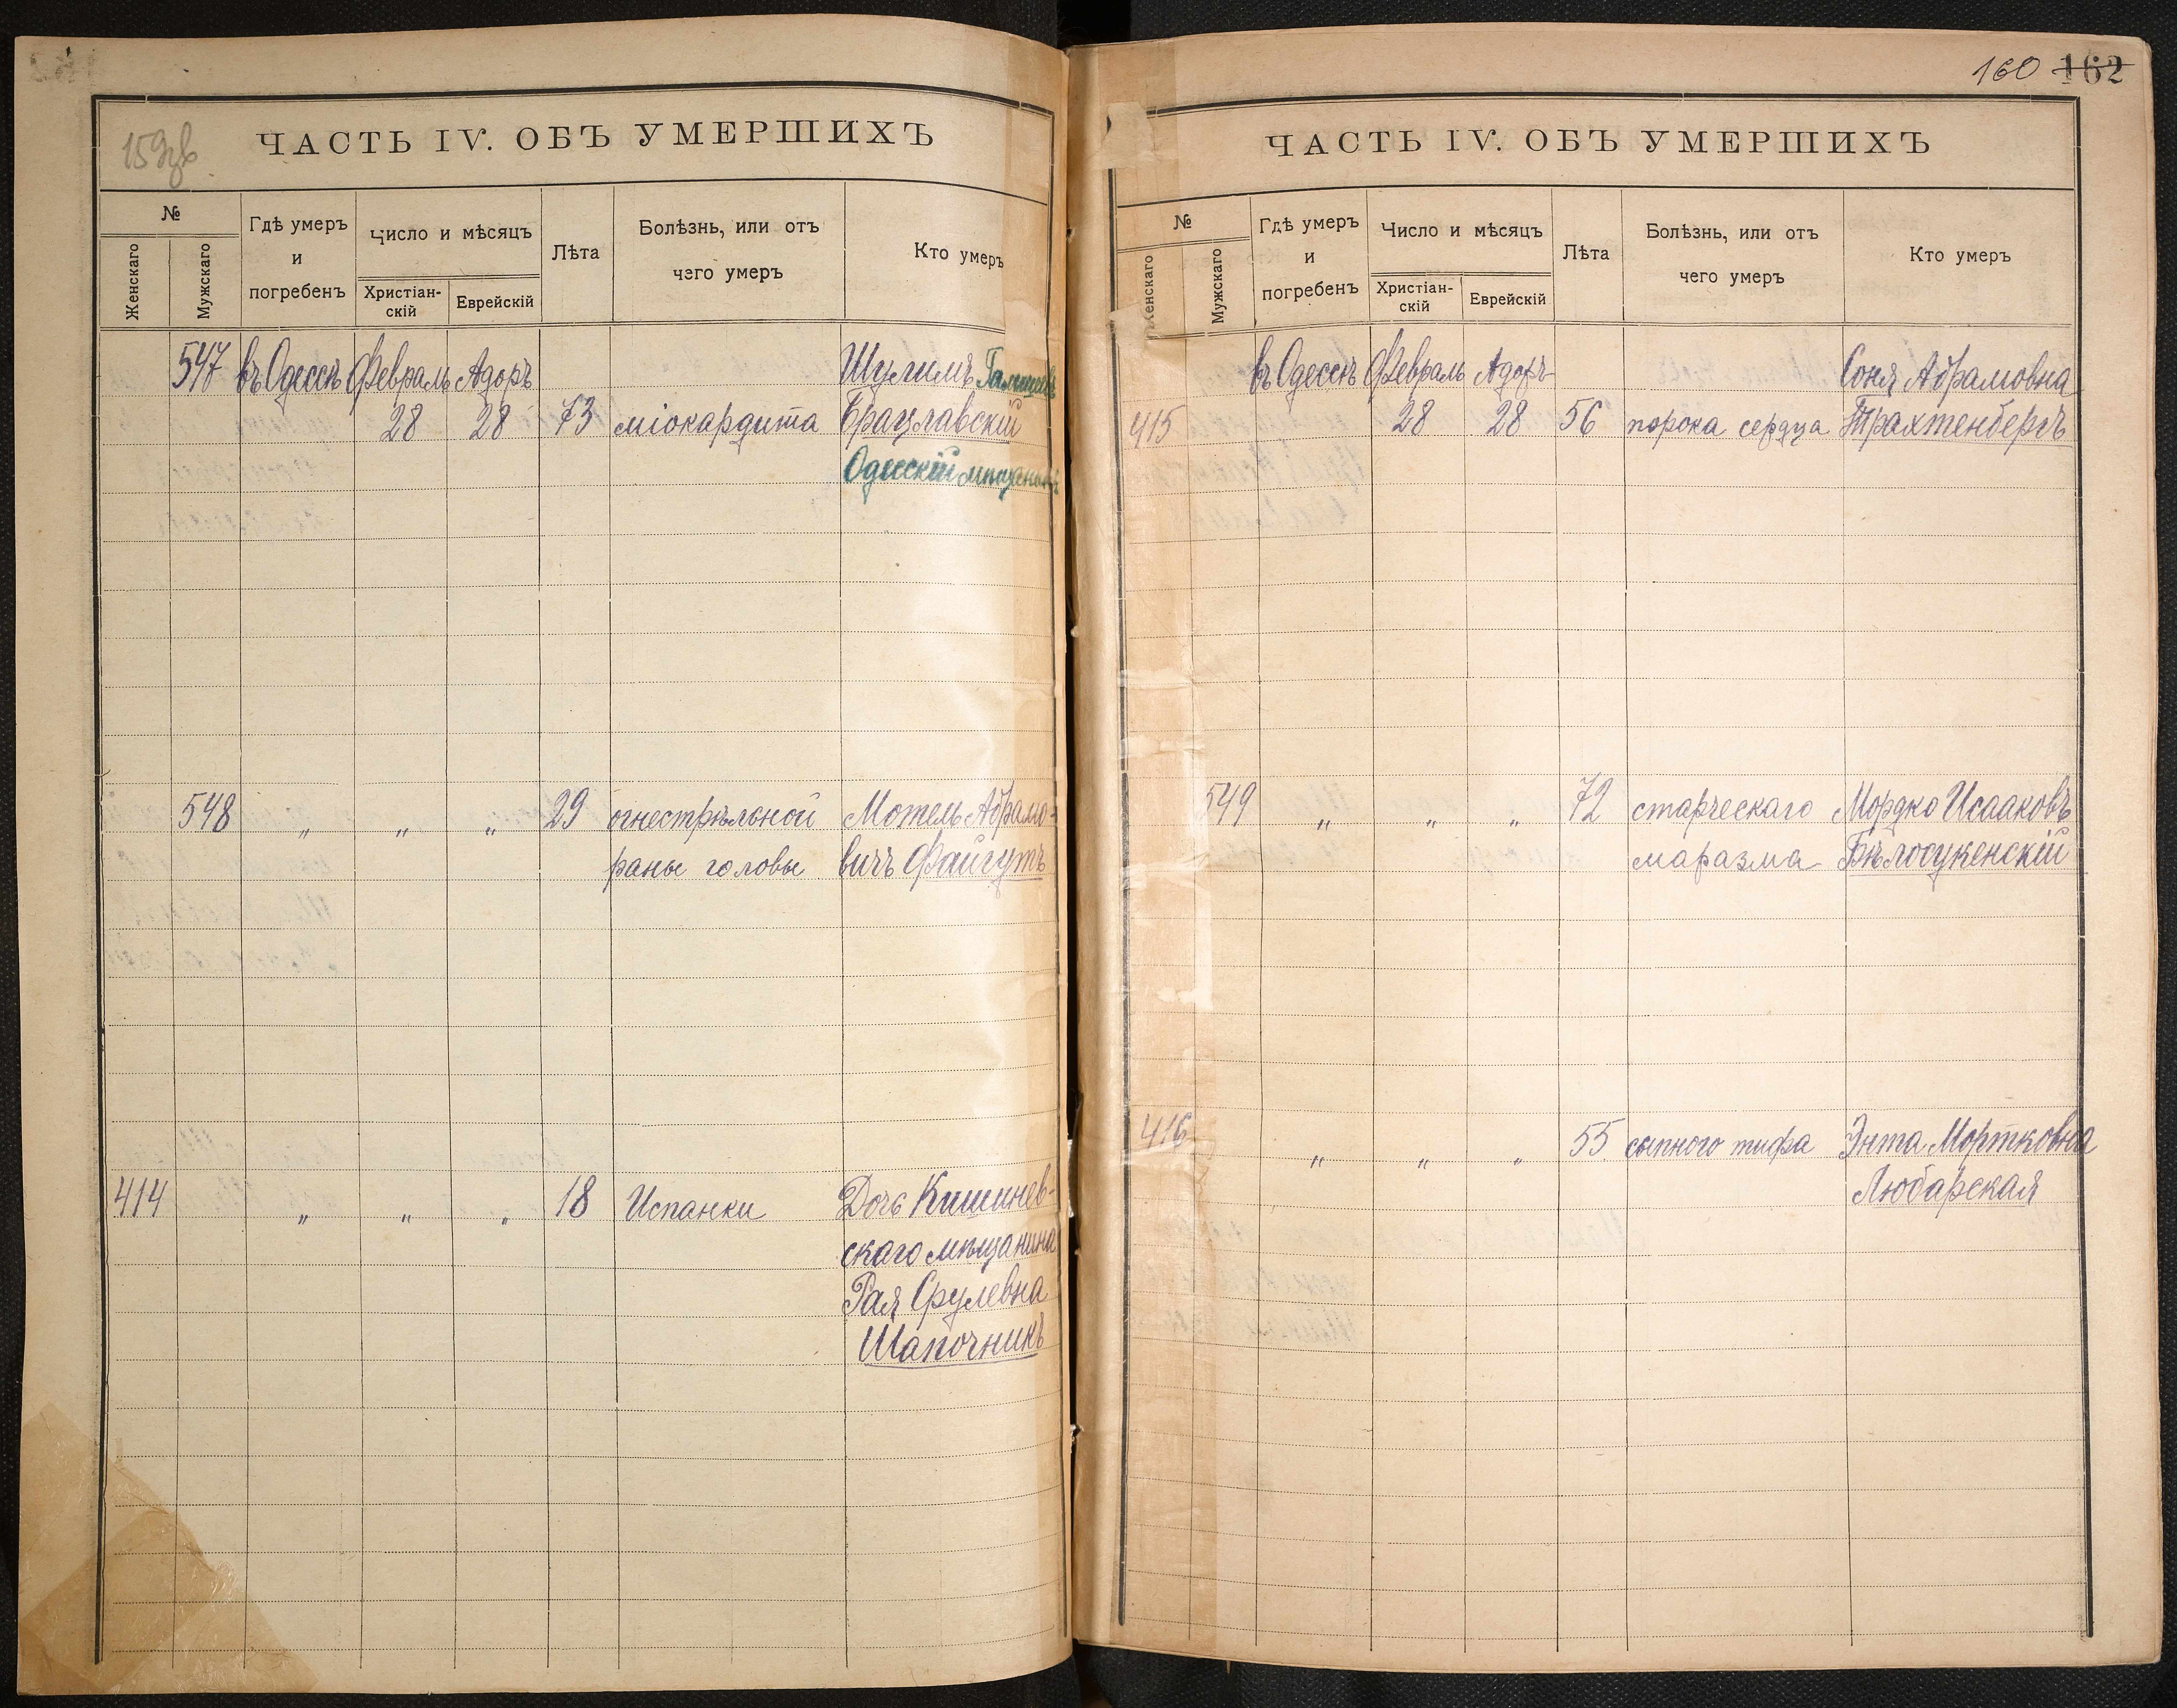 159зв
ЧАСТЬ IV. ОБЪ УМЕРШИХЪ
№
Женскаго
Мужскаго
Гдѣ умеръ
и
погребенъ
Число и мѣсяцъ
Христіан-
скій
Еврейскій
Лѣта
Болѣзнь, или отъ
чего умеръ
Кто умеръ
547 въ Одессѣ Февраль Адоръ Шулимъ
28 28 73 міокардита Брацлавскій
Одесскій мѣщанинъ
548 „ „ „ 29 огнестрѣльной Мотель Абрамо-
раны головы вичъ Файгутъ
414 „ „ „ 18 Испанки Дочь Кишинев-
скаго мѣщанина
Рая Срулевна
Шапочникъ
160 162
ЧАСТЬ IV. ОБЪ УМЕРШИХЪ
№
Женскаго
Мужскаго
Гдѣ умеръ
и
погребенъ
Число и мѣсяцъ
Христіан-
скій
Еврейскій
Лѣта
Болѣзнь, или отъ
чего умеръ
Кто умеръ
въ Одессѣ Февраль Адоръ Соня Абрамовна
415 28 28 56 порока сердца Трахтенбергъ
549 „ „ „ 72 старческаго Мордко Исааковъ
маразма
416 „ „ „ 55 сыпного тифа Энта Мортковна
Любарская